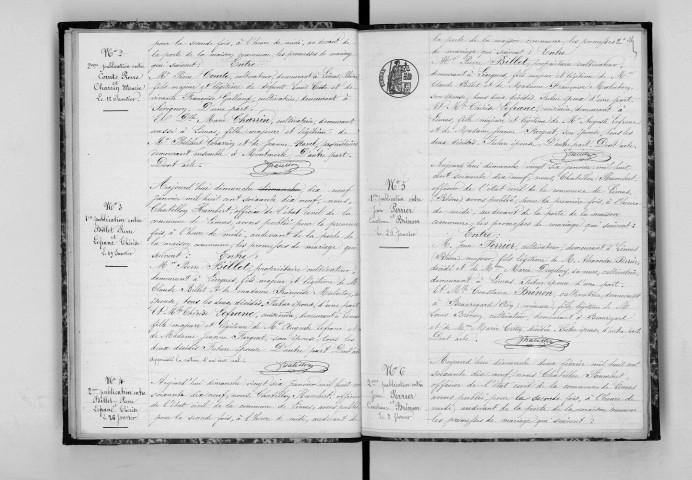 Nº 2
2ème publication entre
Comte Pierre
et
Charrin Marie
le 12 Janvier
pour la seconde fois, à l'heure de midi, au devant de
la porte de la maison commune, les promesses de mariage
qui suivent: Entre:
Mr Pierre Comte, cultivateur, demeurant à Limas, Rhône,
fils majeur et légitime de défunt Comte et de
Françoise Galland, cultivatrice, demeurant à
D'une part
Et Dlle Marie Charrin, cultivatrice, demeurant
aussi à Limas, fille majeure et légitime de
Mr Philibert Charrin et de Jeanne propriétaires
demeurant ensemble à D'autre part.
Dont acte.
Nº 3
1ère publication entre
Billet Pierre
et
Lefranc Thérèse
le 19 Janvier
Aujourd'hui dimanche dix neuf
janvier mil huit cent soixante dix neuf, nous,
Chatillon Humbert, officier de l'état civil de la
commune de Limas, avons publié pour la première
fois, à l'heure de midi, au devant de la porte de
la maison commune, les promesses de mariage qui
suivent: Entre:
Mr Pierre Billet, propriétaire cultivateur,
demeurant à fils majeur et légitime de Mr
Claude Billet et de madame Françoise son
épouse, tous les deux décédés, futur époux, d'une part
Et Mlle Thérèse Lefranc, demeurant à Limas
fille majeure et légitime de Mr Auguste Lefranc et
de Madame Jeanne son épouse, tous les
deux décédés, future épouse. D'autre part. Dont acte
Nº 4
2ème publication entre
Billet Pierre
et
Lefranc Thérèse
le 26 Janvier
Aujourd'hui dimanche vingt six janvier mil huit cent
soixante dix neuf, nous, Chatillon Humbert, officier
de l'état civil de la commune de Limas, avons publié
pour la seconde fois, à l'heure de midi, au devant de
la porte de la maison commune, les promesses
de mariage qui suivent: Entre:
Mr Pierre Billet, propriétaire cultivateur,
demeurant à fils majeur et légitime de Mr
Claude Billet et de Madame Françoise
son épouse, tous les deux décédés, futur époux, d'une part.
Et Mlle Thérèse Lefranc, demeurant à
Limas, fille majeure et légitime de Mr Auguste Lefranc
et de Madame Jeanne son épouse, tous les
deux décédés, future épouse. D'autre part. Dont acte.
Nº 5
1ère publication entre
Jean Perrier
et
Benoin
le 26 Janvier
Aujourd'hui dimanche vingt six janvier mil huit
cent soixante dix neuf, nous, Chatillon Humbert,
officier de l'état civil de la commune de Limas
(Rhône) avons publié, pour la première fois, à l'heure
de midi, au devant de la porte de la maison
commune, les promesses de mariage qui suivent:
Entre:
Mr Jean Perrier, cultivateur, demeurant à Limas
(Rhône) majeur, fils légitime de Mr Alexandre Perrier,
décédé et de Mme Marie sa veuve, cultivatrice,
demeurant à Limas, futur époux d'une part.
Et Mlle Benoin, cultivatrice, demeurant à
fille légitime de Mr
Louis Benoin, cultivateur, demeurant à
et de Mme Marie décédée, future épouse, d'autre part.
Dont acte.
Nº 6
2ème publication entre
Jean Perrier
et
Benoin
le 2 février
Aujourd'hui dimanche deux février mil huit cent
soixante dix neuf, nous, Chatillon Humbert,
officier de l'état civil de la commune de Limas
avons publié pour la seconde fois, à l'heure de
midi, au devant de la porte de la maison commune
les promesses de mariage qui suivent: